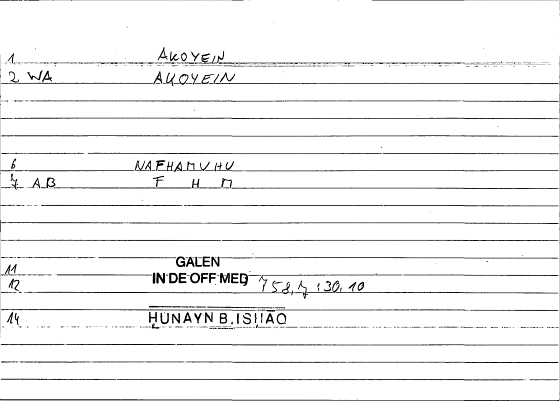 1 AKOYEIN
2 WA AKOYEIN
6 NAFHAMUHU
7 AB F H M
11 GALEN
12 IN DE OFF MED 758,7 : 30,10
14 ḤUNAYN B. ISḤĀQ